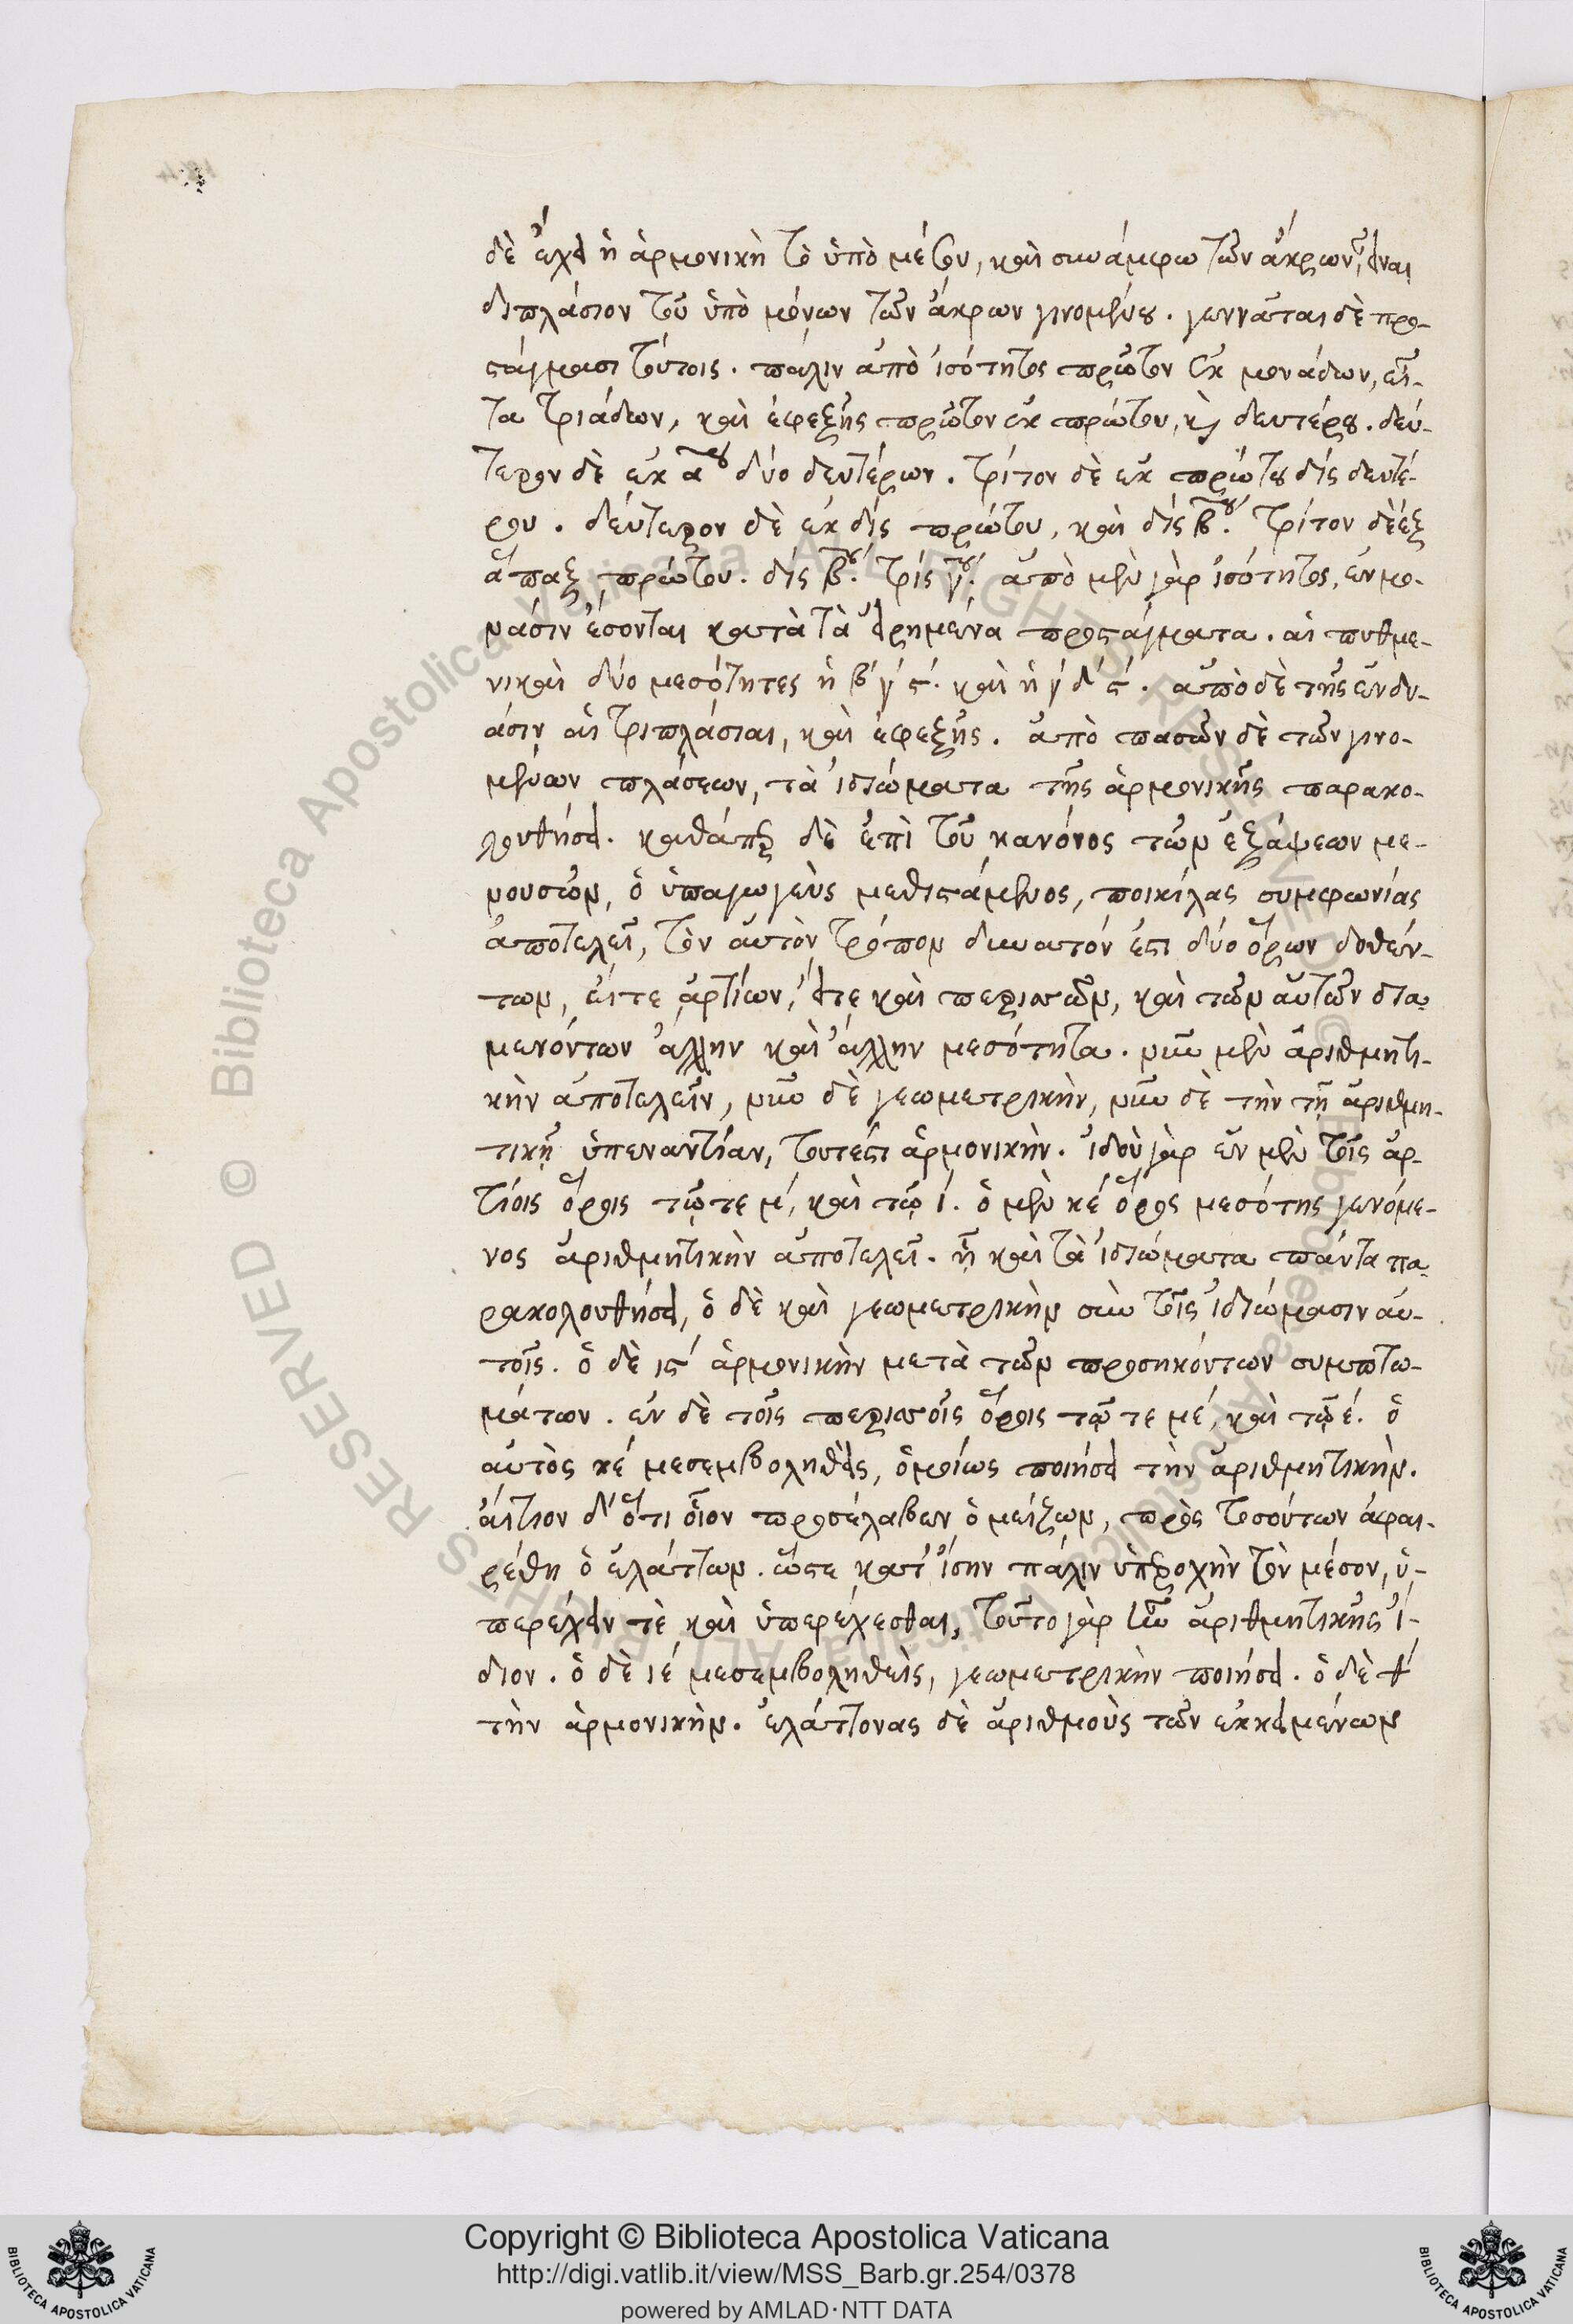 δὲ ἔχει ἡ ἁρμονικὴ τὸ ὑπὸ μέσου, καὶ συνάμφω τῶν ἄκρων, εἶναι
διπλάσιον τοῦ ὑπὸ μόνων τῶν ἄκρων γινομένου. γεννᾶται δὲ προ-
στάγμασι τούτοις. πάλιν ἀπὸ ἰσότητος πρῶτον ἐκ μονάδων, εἶ-
τα τριάδων, καὶ ἐφεξῆς πρῶτον ἐκ πρώτου, κ δευτέρου. δεύ-
τερον δὲ ἐκ α^ου δύο δευτέρων. τρίτον δὲ ἐκ πρώτου δὶς δευτέ-
ρου. δεύτερον δὲ ἐκ δὶς πρώτου, καὶ δὶς β^ου. τρίτον δὲ ἐξ
ἅπαξ πρώτου. δὶς β^ου. τρὶς γ^ου. ἀπὸ μὲν γὰρ ἰσότητος, ἐν μο-
νάσιν ἔσονται κατὰ τὰ εἰρημένα προστάγματα. αἱ πυθμε-
νικαὶ δύο μεσότητες ἡ β´ γ´ ς´. καὶ ἡ γ´ δ´ ς´. ἀπὸ δὲ τῆς ἐν δυ-
άσιν αἱ τριπλάσιαι, καὶ ἐφεξῆς. ἀπὸ πασῶν δὲ τῶν γινο-
μένων πλάσεων, τὰ ἰδιώματα τῆς ἁρμονικῆς παρακο-
λουθήσει. καθάπερ δὲ ἐπὶ τοῦ κανόνος τῶν ἐξάψεων με-
νουσῶν, ὁ ὑπαγωγεὺς μεθιστάμενος, ποικίλας συμφωνίας
ἀποτελεῖ, τὸν αὐτὸν τρόπον δυνατόν ἐστι δύο ὅρων δοθέν-
των, εἴτε ἀρτίων, εἴτε καὶ περισσῶν, καὶ τῶν αὐτῶν δια
μενόντων ἄλλην καὶ ἄλλην μεσότητα. νῦν μὲν ἀριθμητι-
κὴν ἀποτελεῖν, νῦν δὲ γεωμετρικὴν, νῦν δὲ τὴν τῇ ἀριθμη-
τικῇ ὑπεναντίαν, τουτέστι ἁρμονικὴν. ἰδοὺ γὰρ ἐν μὲν τοῖς ἀρ-
τίοις ὅροις τῷ τε μ´, καὶ τῷ ι´. ὁ μὲν κέ ὅρος μεσότης γενόμε-
νος ἀριθμητικὴν ἀποτελεῖ. ᾗ καὶ τὰ ἰδιώματα πάντα πα-
ρακολουθήσει, ὁ δὲ καὶ γεωμετρικὴν σὺν τοῖς ἰδιώμασιν αὐ-
τοῖς. ὁ δὲ ις´ ἁρμονικὴν μετὰ τῶν προσηκόντων συμπτω-
μάτων. ἐν δὲ τοῖς περισσοῖς ὅροις τῷ τε μέ, καὶ τῷ έ. ὁ
αὐτὸς κέ μεσεμβοληθεὶς, ὁμοίως ποιήσει τὴν ἀριθμητικὴν.
αἴτιον δ' ὅτι οἷον προσέλαβεν ὁ μείζων, πρὸς τοσούτων ἀφαι-
ρέθη ὁ ἐλάττων. ὥστε κατ' ἴσην πάλιν ὑπεροχὴν τὸν μέσον, ὑ-
περέχειν τὲ καὶ ὑπερέχεσθαι, τοῦτο γὰρ ἦν ἀριθμητικῆς ἴ-
διον. ὁ δὲ ιέ μεσεμβοληθεὶς, γεωμετρικὴν ποιήσει. ὁ δὲ θ´
τὴν ἁρμονικὴν. ἐλάττονας δὲ ἀριθμοὺς τῶν ἐκκειμένων
© Biblioteca Apostolica Vaticana ALL RIGHTS RESERVED © Biblioteca Apostolica Vaticana ALL RIGHTS RESERVED
BIBLIOTECA APOSTOLICA VATICANA
Copyright © Biblioteca Apostolica Vaticana
http://digi.vatlib.it/view/MSS_Barb.gr.254/0378
powered by AMLAD·NTT DATA
BIBLIOTECA APOSTOLICA VATICANA